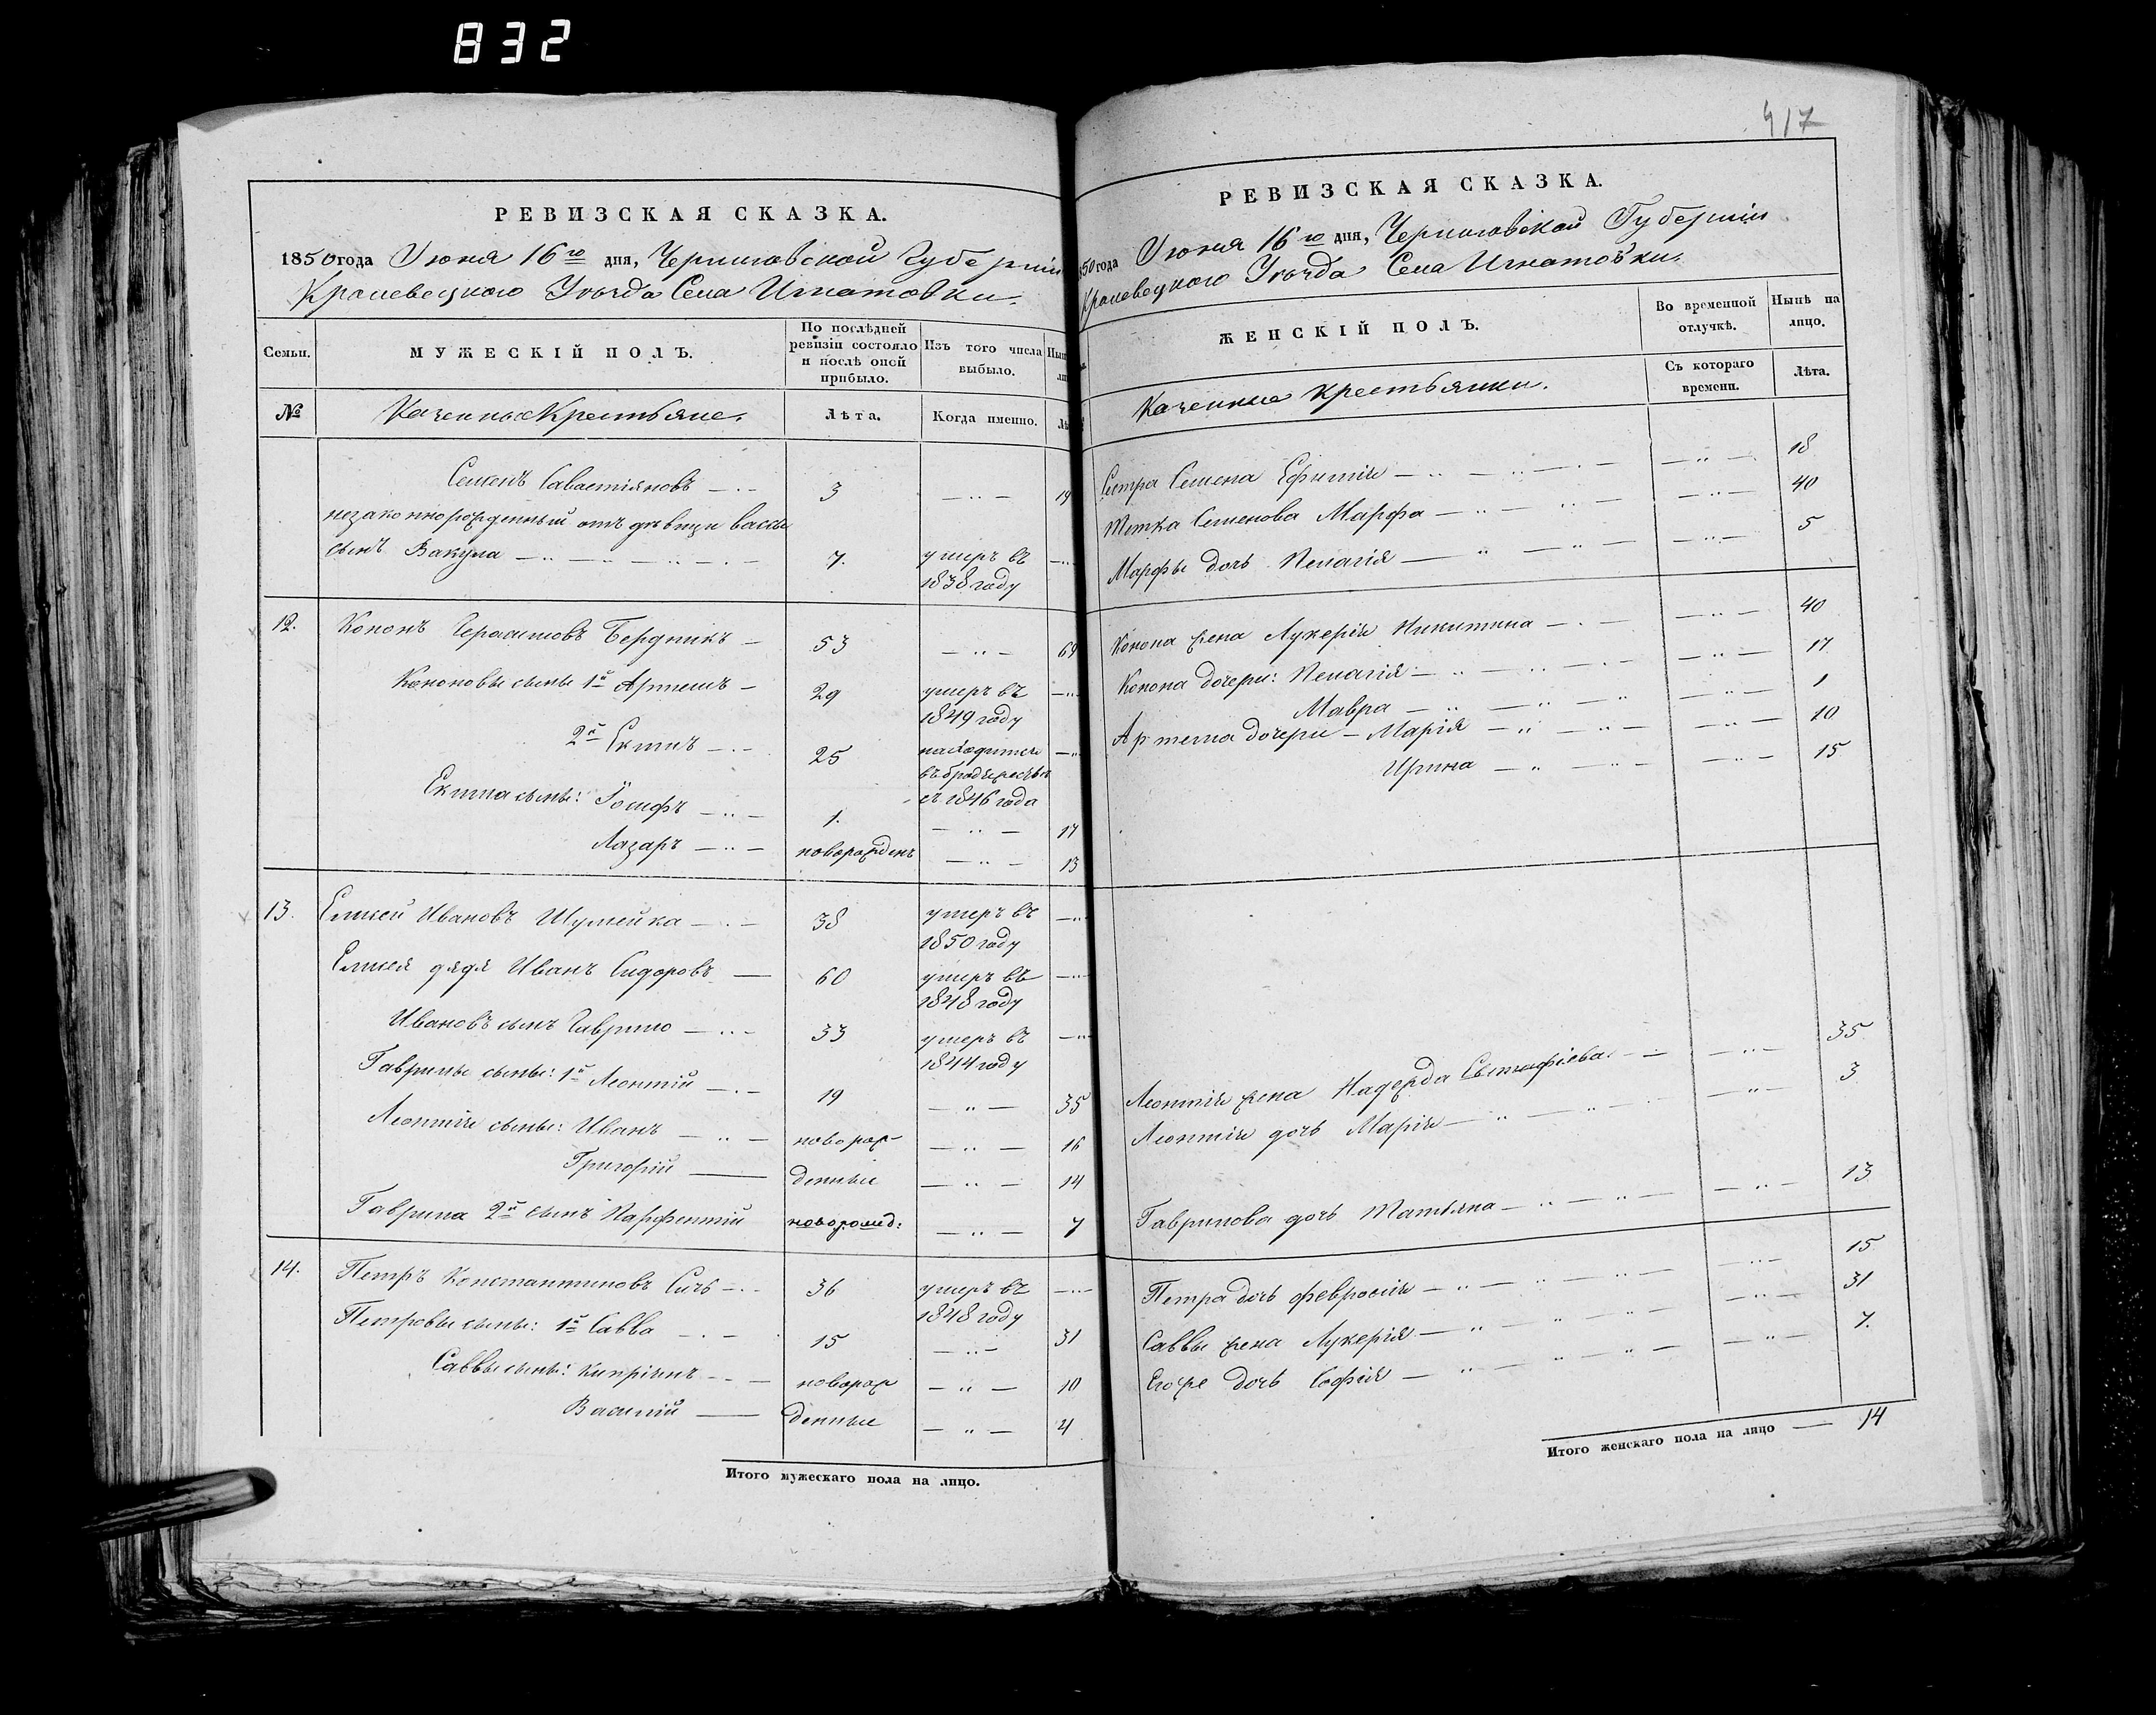 832
417
РЕВИЗСКАЯ СКАЗКА.
1850 года Июня 16го дня, Черниговской Губерніи
Кролевецкого Уѣзда Села Игнатовки.
Семьи.
МУЖЕСКІЙ ПОЛЪ.
По послѣдней ревизіи состояло и послѣ оной прибыло.
Изъ того числа выбыло.
№
Казенные Крестьяне.
Лѣта.
Когда именно.
Семенъ Савастіяновъ — 3 — " — 19
незаконнорожденный отъ дѣвици Вассы
сынъ Вакула — " — 7. умеръ въ
1838 году
12. Кононъ Герасимовъ Бердникъ — 53 — " — 69
Кононовы сыны 1й Артемъ — 29 умеръ въ
1849 году
2й Екимъ — 25 находится
въ бродяжествѣ
съ 1846 года
Екима сыны: Іосифъ — " — 1. — " — 17
Лазарь — " — новорожденъ — " — 13
13. Елисей Ивановъ Шумейка — 38 умеръ въ
1850 году
Елисея дядя Иванъ Сидоровъ — 60 умеръ въ
1848 году
Ивановъ сынъ Гаврило — " — 33 умеръ въ
1844 году
Гаврилы сыны: 1й Леонтій — 19 — " — 35
Леонтія сыны: Иванъ — " — новорож- — " — 16
Григорій — денные — " — 14
Гаврила 2й сынъ Парфентій новорожд: — " — 7
14. Петръ Константиновъ Сичъ — 36 умеръ въ
1848 году
Петровы сыны: 1й Савва — 15 — " — 31
Саввы сыны: Кипріянъ — новорож — " — 10
Василій — денные — " — 4
Итого мужескаго пола на лицо.
РЕВИЗСКАЯ СКАЗКА.
50 года Июня 16го дня, Черниговской Губерніи
Кролевецкого Уѣзда Села Игнатовки.
ЖЕНСКІЙ ПОЛЪ.
Во временной отлучкѣ.
Нынѣ на лицо.
Казенные крестьянки.
Съ котораго времени.
Лѣта.
Сестра Семена Ефимія — " — 18
Тетка Семенова Марфа — " — 40
Марфы дочь Пелагія — " — 5
Конона жена Лукерія Никитина — " — 40
Конона дочери: Пелагія — " — 17
Мавра — " — 1
Артема дочери — Марія — " — 10
Ирина — " — 15
Леонтія жена Надежда — " — 35
Леонтія дочь Марія — " — 3
Гаврилова дочь Татьяна — " — 13
Петра дочь Февросія — " — 15
Саввы жена Лукерія — " — 31
Егоже дочь Софія — " — 7.
Итого женскаго пола на лицо — 14